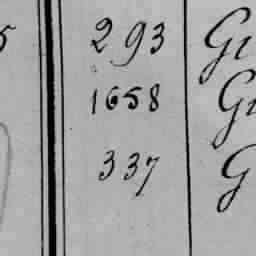 5 293 Gi
1658 Gu
337 G